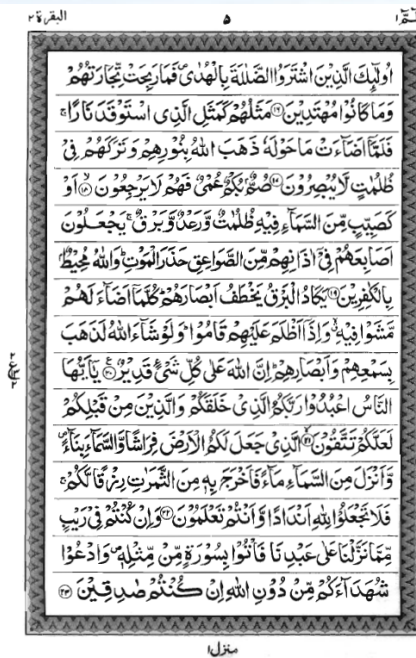 الٓمّٓ ١ ٥ البقرة ٢
اُولٰٓئِكَ الَّذِيْنَ اشْتَرَوُا الضَّلٰلَةَ بِالْهُدٰى فَمَا رَبِحَتْ تِّجَارَتُهُمْ
وَمَا كَانُوْا مُهْتَدِيْنَ ﴿١٦﴾ مَثَلُهُمْ كَمَثَلِ الَّذِى اسْتَوْقَدَ نَارًا ۚ
فَلَمَّآ اَضَآءَتْ مَا حَوْلَهٗ ذَهَبَ اللّٰهُ بِنُوْرِهِمْ وَتَرَكَهُمْ فِىْ
ظُلُمٰتٍ لَّا يُبْصِرُوْنَ ﴿١٧﴾ صُمٌّۢ بُكْمٌ عُمْىٌ فَهُمْ لَا يَرْجِعُوْنَ ﴿١٨﴾ اَوْ
كَصَيِّبٍ مِّنَ السَّمَآءِ فِيْهِ ظُلُمٰتٌ وَّرَعْدٌ وَّبَرْقٌ ۚ يَجْعَلُوْنَ
اَصَابِعَهُمْ فِىْٓ اٰذَانِهِمْ مِّنَ الصَّوَاعِقِ حَذَرَ الْمَوْتِ ؕ وَاللّٰهُ مُحِيْطٌۢ
بِالْكٰفِرِيْنَ ﴿١٩﴾ يَكَادُ الْبَرْقُ يَخْطَفُ اَبْصَارَهُمْ ؕ كُلَّمَآ اَضَآءَ لَهُمْ
مَّشَوْا فِيْهِ ۙ وَاِذَآ اَظْلَمَ عَلَيْهِمْ قَامُوْا ؕ وَلَوْ شَآءَ اللّٰهُ لَذَهَبَ
بِسَمْعِهِمْ وَاَبْصَارِهِمْ ؕ اِنَّ اللّٰهَ عَلٰى كُلِّ شَىْءٍ قَدِيْرٌ ﴿٢٠﴾ يٰٓاَيُّهَا
النَّاسُ اعْبُدُوْا رَبَّكُمُ الَّذِىْ خَلَقَكُمْ وَالَّذِيْنَ مِنْ قَبْلِكُمْ
لَعَلَّكُمْ تَتَّقُوْنَ ﴿٢١﴾ الَّذِىْ جَعَلَ لَكُمُ الْاَرْضَ فِرَاشًا وَّالسَّمَآءَ بِنَآءً ۪
وَّاَنْزَلَ مِنَ السَّمَآءِ مَآءً فَاَخْرَجَ بِهٖ مِنَ الثَّمَرٰتِ رِزْقًا لَّكُمْ ۚ
فَلَا تَجْعَلُوْا لِلّٰهِ اَنْدَادًا وَّاَنْتُمْ تَعْلَمُوْنَ ﴿٢٢﴾ وَاِنْ كُنْتُمْ فِىْ رَيْبٍ
مِّمَّا نَزَّلْنَا عَلٰى عَبْدِنَا فَاْتُوْا بِسُوْرَةٍ مِّنْ مِّثْلِهٖ ۪ وَادْعُوْا
شُهَدَآءَكُمْ مِّنْ دُوْنِ اللّٰهِ اِنْ كُنْتُمْ صٰدِقِيْنَ ﴿٢٣﴾
٢
ع
٢
منزل ١